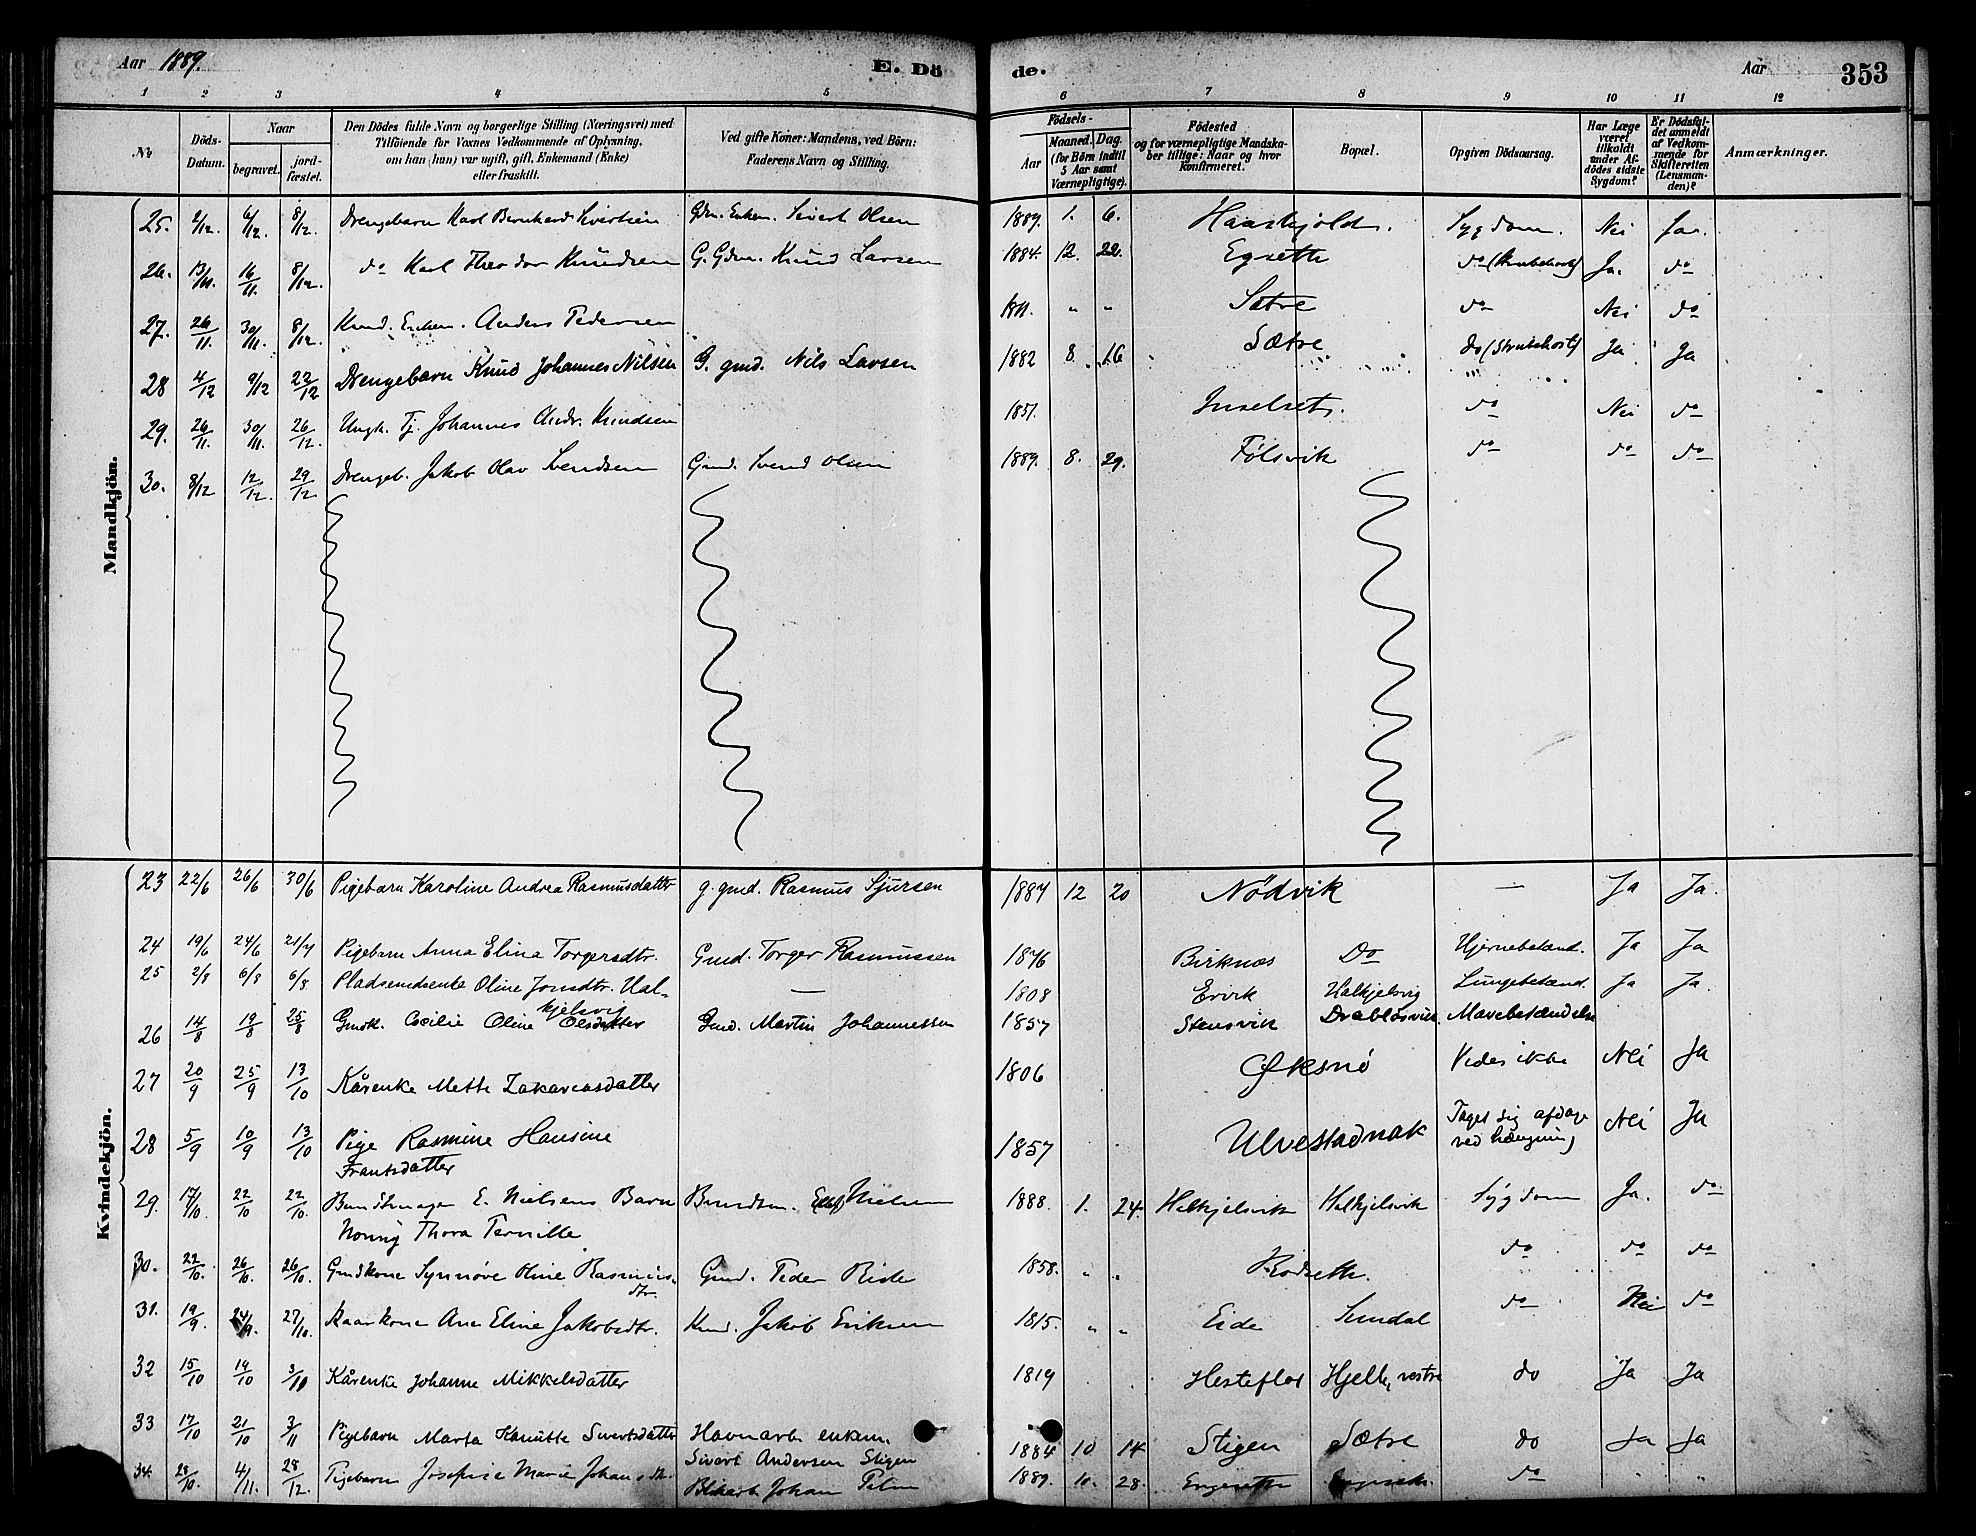 Aar 1889. E. Dö de. Aar 353
1 2 3 4 5 6 7 8 9 10 11 12
No. Döds-Datum. Naar begravet. jordfæstet. Den Dödes fulde Navn og borgerlige Stilling (Næringsvei) med Tilföiende for Voxnes Vedkommende af Oplysning, om han (hun) var ugift, gift, Enkemand (Enke) eller fraskilt. Ved gifte Koner: Mandens, ved Börn: Faderens Navn og Stilling. Födsels- Aar Maaned. Dag. (for Börn indtil 5 Aar samt Værnepligtige). Födested og for værnepligtige Mandskaber tillige: Naar og hvor Konfirmeret. Bopæl. Opgiven Dödsaarsag. Har Læge været tilkaldt under Afdödes sidste Sygdom? Er Dödsfaldet anmeldt af Vedkommende for Skifteretten (Lensmanden)? Anmærkninger.
Mandkjön.
25. 2/12 6/12. 8/12. Drengebarn Karl Bernhard Sivertsen Gdm. Enkem. Sivert Olsen 1889. 1. 6. Haaskjold. Sygdom. Nei Ja.
26. 13/11. 16/11. 8/12. do Karl Theodor Knudsen G. Gdm. Knud Larsen 1884. 12. 22. Egseth do (Strubehoste) Ja. do
27. 26/11. 30/11. 8/12. Kaud. Enkem. Anders Pedersen " " Sætre do Nei do
28 4/12 9/12 22/12 Drengebarn Knud Johannes Nilsen G. gmd. Nils Larsen 1882 8. 16 Sætre do (Strubehoste) Ja Ja
29. 26/11. 30/11. 26/12. Ungk. Tj. Johannes Andr. Knudsen 1851. Inselset. do Nei do
30. 8/12 12/12. 29/12 Drengeb. Jakob Olav Svendsen Gmd. Svend Olsen 1889. 8. 29. Følsvik do do do
Kvindekjön.
23 22/6 26/6 30/6 Pigebarn Karoline Andrea Rasmusdatter g. gmd. Rasmus Sjursen 1887 12 20 Nødvik — Ja Ja.
24 19/6 24/6 21/7 Pigebarn Anna Elina Torgersdtr. Gmd. Torger Rasmussen 1876 Birknæs Do Hjernebetænd. Ja Ja
25 2/8 6/8 6/8 Pladsemdsenke Oline Jonsdtr. Hal- — 1808 Ervik Halkjelsvig Lungebetænd. Ja Ja.
kjelsvig
26 14/8 19/8 25/8 Gmdk. Cecilie Oline Olsdatter Gmd. Martin Johannessen 1857 Stensvik Drabløsvik Mavebetændelse
27 20/9 25/9 13/10 Kårenke Mette Zakariasdatter 1806 Øksnø Vides ikke Nei Ja
28 5/9 10/9 13/10 Pige Rasmine Hansine 1857 Ulvestadnak Taget sig afdage Nei Ja
Frantsdatter ved hængning
29. 17/10. 22/10 22/10. Bundtmager E. Nielsens Barn Bundtm. Nielsen 1888. 1. 24. Halkjelsvik Halkjelsvik Sygdom Ja. do
Thora Pernille
30. 22/10. 26/10. 26/10. Gmdkone Synnøve Oline Rasmus- Gmd. Peder 1858. " " Rodseth. do do do
dtr.
31. 19/9. 24/9. 27/10. Kaarkone Ane Eline Jakobsdtr. Kmd. Jakob Eriksen 1815. " " Eide Sundal do Nei do
32 15/10 19/10 3/11 Kårenke Johanne Mikkelsdatter 1819 Hesteflot Hjelle, vestre do Ja Ja
33 17/10 21/10 3/11 Pigebarn Marta Knutte Sivertsdatter Havnarb. enkem. 1884 10 14 Stigen Sætre do Ja Ja
Sivert Andersen Stigen
34. 28/10. 4/11. 28/12 Pigebarn Josefine Marie Johansdtr. Johan 1889. 10. 28. Engeseth do